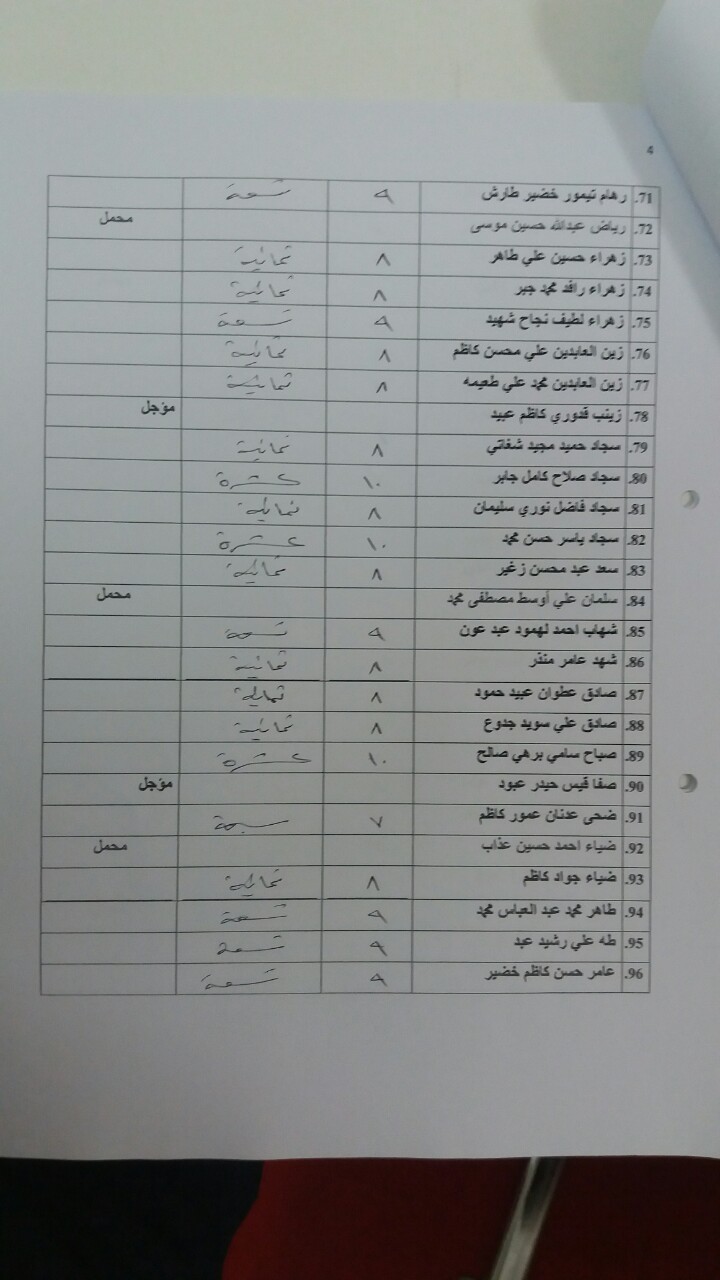 4
71. رهام تيمور خضير طارش ٩ تسعة
72. رياض عبدالله حسين موسى محمل
73. زهراء حسين علي طاهر ٨ ثمانية
74. زهراء رافد محمد جبر ٨ ثمانية
75. زهراء لطيف نجاح شهيد ٩ تسعة
76. زين العابدين علي محسن كاظم ٨ ثمانية
77. زين العابدين محمد علي طعيمه ٨ ثمانية
78. زينب قدوري كاظم عبيد مؤجل
79. سجاد حميد مجيد شغاتي ٨ ثمانية
80. سجاد صلاح كامل جابر ١٠ عشرة
81. سجاد فاضل نوري سليمان ٨ ثمانية
82. سجاد ياسر حسن محمد ١٠ عشرة
83. سعد عبد محسن زغير ٨ ثمانية
84. سلمان علي أوسط مصطفى محمد محمل
85. شهاب احمد لهمود عبد عون ٩ تسعة
86. شهد عامر منذر ٨ ثمانية
87. صادق عطوان عبيد حمود ٨ ثمانية
88. صادق علي سويد جدوع ٨ ثمانية
89. صباح سامي برهي صالح ١٠ عشرة
90. صفا قيس حيدر عبود مؤجل
91. ضحى عدنان عمور كاظم ٧ سبعة
92. ضياء احمد حسين عذاب محمل
93. ضياء جواد كاظم ٨ ثمانية
94. طاهر محمد عبد العباس محمد ٩ تسعة
95. طه علي رشيد عبد ٩ تسعة
96. عامر حسن كاظم خضير ٩ تسعة